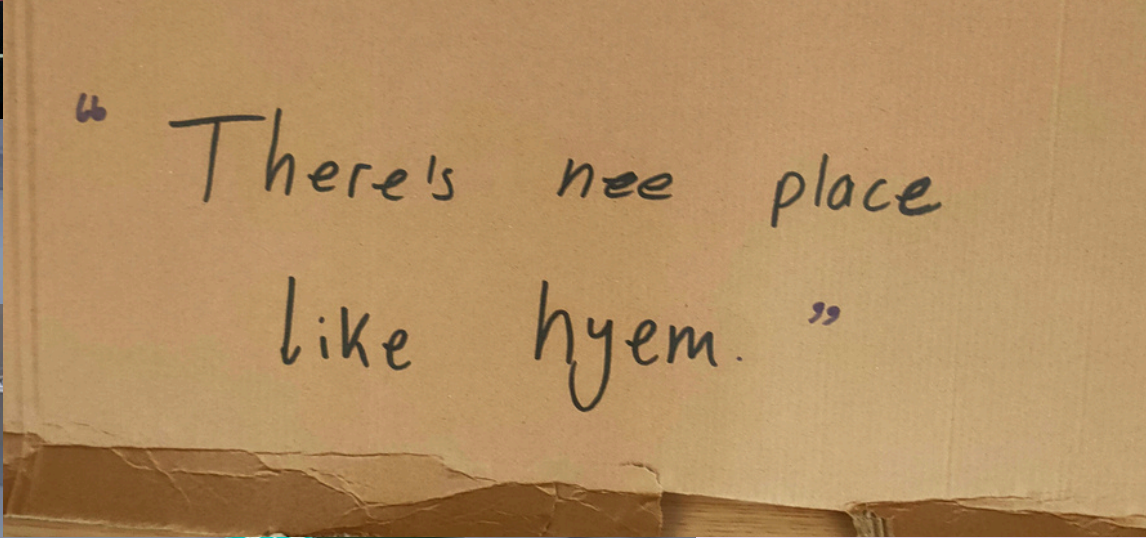 “ There's nee place
like hyem. ”